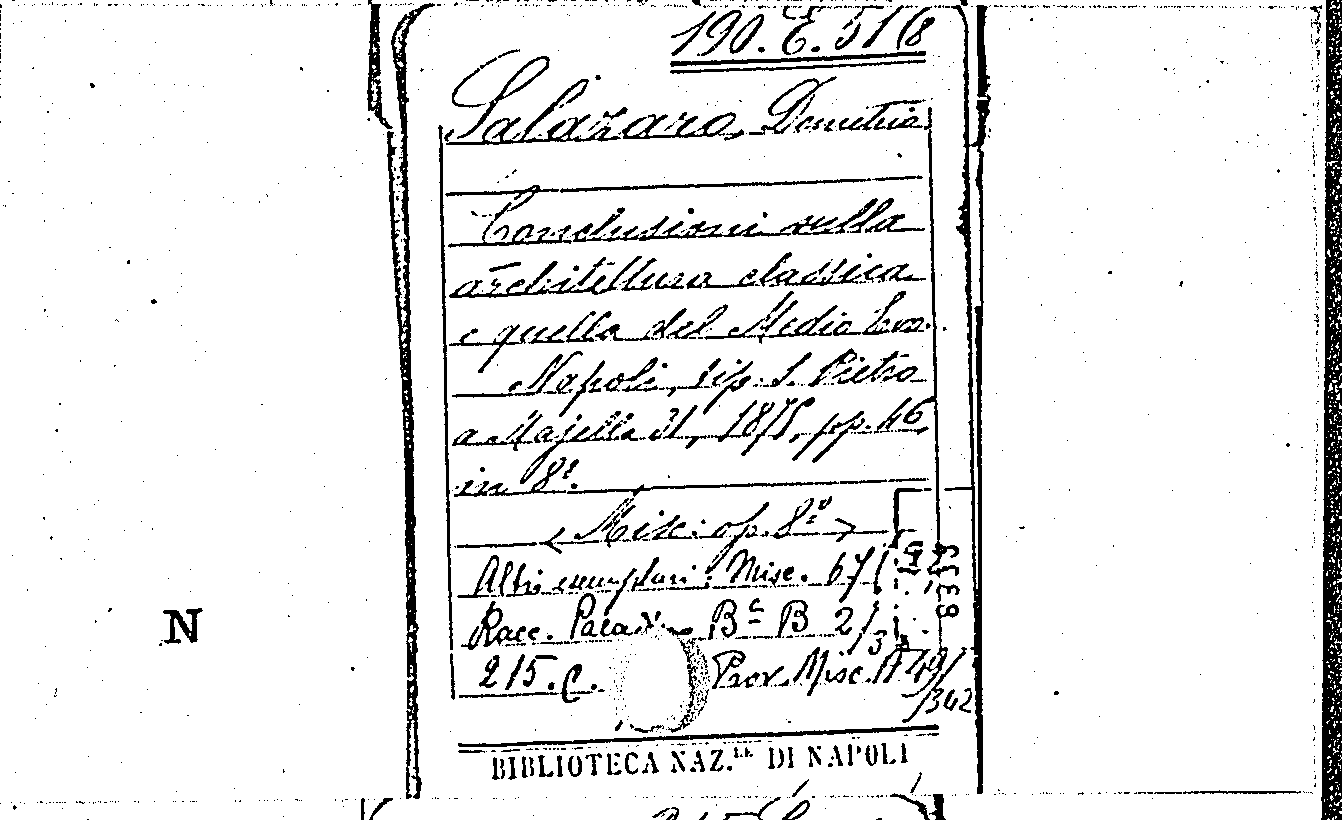 190. E. 51(8
Salazaro, Demetrio
Conclusioni sulla
architettura classica
e quella del Medio Evo.
Napoli, tip. S. Pietro
a Majella 31, 1875, pp. 46
in 8º.
< Misc: op. 8º >
Altri esemplari: Misc. 67(
Racc. B B 2/3
215. C. Prov. Misc. A 49/
/362
8353
N
BIBLIOTECA NAZ.LE DI NAPOLI